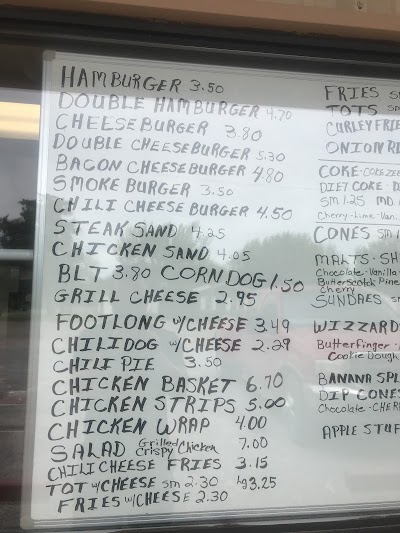 HAMBURGER 3.50
DOUBLE HAMBURGER 4.70
CHEESEBURGER 3.80
DOUBLE CHEESEBURGER 5.30
BACON CHEESEBURGER 4.80
SMOKE BURGER 3.50
CHILI CHEESEBURGER 4.50
STEAK SAND 4.25
CHICKEN SAND 4.05
BLT 3.80 CORNDOG 1.50
GRILL CHEESE 2.95
FOOTLONG W/CHEESE 3.49
CHILIDOG W/CHEESE 2.29
CHILI PIE 3.50
CHICKEN BASKET 6.70
CHICKEN STRIPS 5.00
CHICKEN WRAP 4.00
SALAD Grilled Crispy Chicken 7.00
CHILI CHEESE FRIES 3.15
TOT W/CHEESE sm 2.30 lg 3.25
FRIES W/CHEESE 2.30
FRIES
TOTS
CURLEY FRIE
ONION
COKE
DIET COKE
SM 1.25 MD
Cherry-Lime-Van
CONES SM
MALTS-SH
Chocolate-Vanilla
Butterscotch Pine
Cherry
SUNDAES
WIZZARD
Butterfinger
Cookie Dough
BANANA SPL
DIP CONES
Chocolate-CHER
APPLE STUF